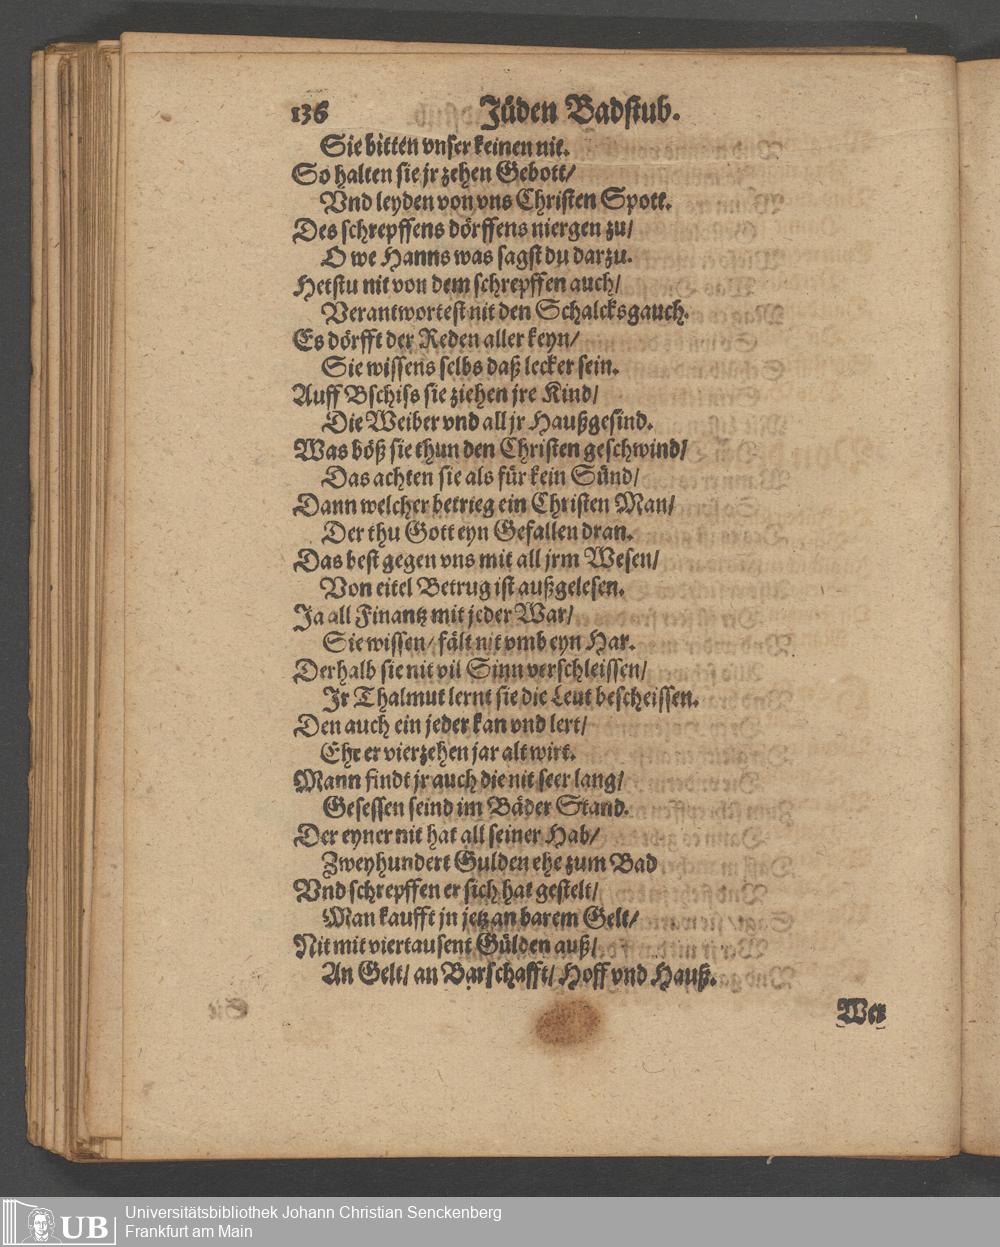 136 Jüden Badstub.
Sie bitten vnser keinen nit.
So halten sie jr zehen Gebott/
Vnd leyden von vns Christen Spott.
Des schrepffens dörffens niergen zu/
O we Hanns was sagst du darzu.
Hetstu nit von dem schrepffen auch/
Verantwortest nit den Schalcksgauch.
Es dörfft der Reden aller keyn/
Sie wissens selbs daß lecker sein.
Auff Bschiss sie ziehen jre Kind/
Die Weiber vnd all jr Haußgesind.
Was böß sie thun den Christen geschwind/
Das achten sie als für kein Sünd/
Dann welcher betrieg ein Christen Man/
Der thu Gott eyn Gefallen dran.
Das best gegen vns mit all jrm Wesen/
Von eitel Betrug ist außgelesen.
Ja all Finantz mit jeder War/
Sie wissen/ fält nit vmb eyn Har.
Derhalb sie nit vil Sinn verschleissen/
Jr Thalmut lernt sie die Leut bescheissen.
Den auch ein jeder kan vnd lert/
Ehr er vierzehen jar alt wirt.
Mann findt jr auch die nit seer lang/
Gesessen seind im Bäder Stand.
Der eyner nit hat all seiner Hab/
Zweyhundert Gulden ehe zum Bad
Vnd schrepffen er sich hat gestelt/
Man kaufft jn jetz an barem Gelt/
Nit mit viertausent Gülden auß/
An Gelt/ an Barschafft/ Hoff vnd Hauß.
Wer
UB Universitätsbibliothek Johann Christian Senckenberg
Frankfurt am Main